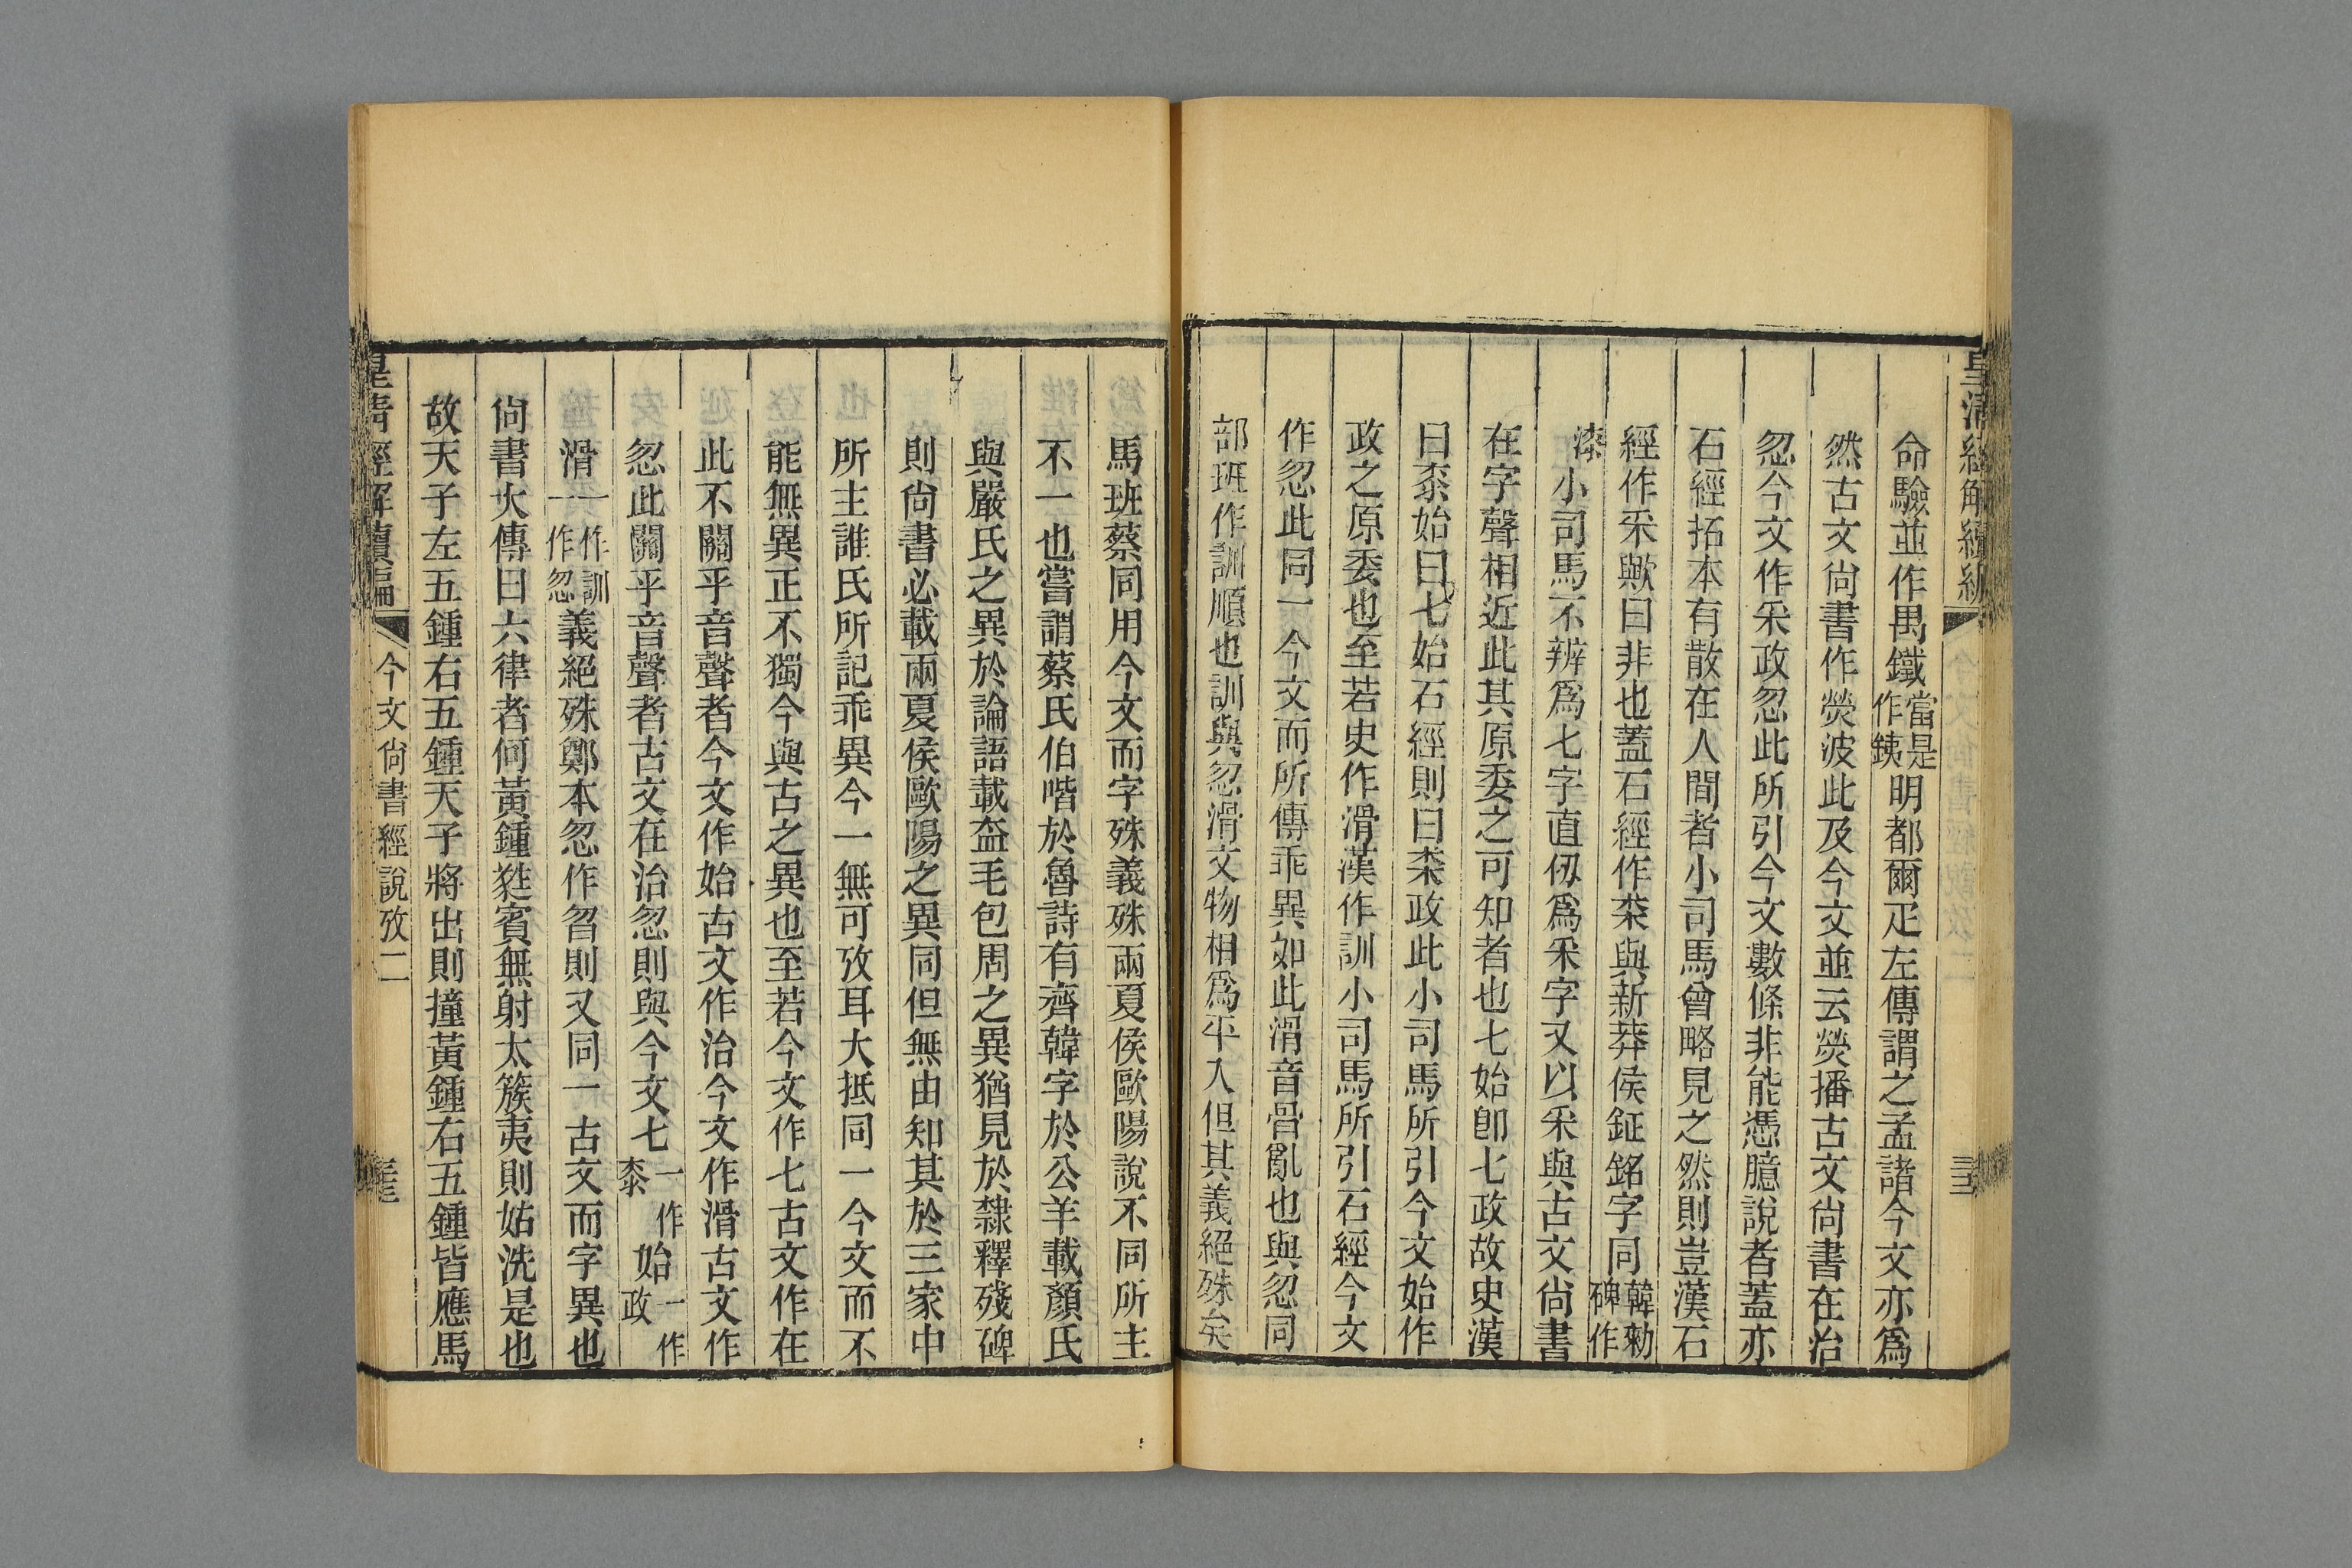 皇清經解續編
命驗並作禺鐵當是作銕明都爾疋左傳謂之孟諸今文亦爲
然古文尙書作熒波此及今文並云熒播古文尙書在治
忽今文作采政忽此所引今文數條非能憑臆說者蓋亦
石經拓本有散在人間者小司馬曾略見之然則豈漢石
經作采歟曰非也蓋石經作桼與新莽侯鉦銘字同韓勑碑作
漆小司馬不辨爲七字直仞爲采字又以采與古文尙書
在字聲相近此其原委之可知者也七始卽七政故史漢
曰桼始曰七始石經則曰桼政此小司馬所引今文始作
政之原委也至若史作滑漢作訓小司馬所引石經今文
作忽此同一今文而所傳乖異如此滑音骨亂也與忽同
部班作訓順也訓與忽滑文物相爲平入但其義絕殊矣
馬班蔡同用今文而字殊義殊兩夏侯歐陽說不同所主
不一也嘗謂蔡氏伯喈於魯詩有齊韓字於公羊載顏氏
與嚴氏之異於論語載盍毛包周之異猶見於隸釋殘碑
則尙書必載兩夏侯歐陽之異同但無由知其於三家中
所主誰氏所記乖異今一無可攷耳大抵同一今文而不
能無異正不獨今與古之異也至若今文作七古文作在
此不關乎音聲者今文作始古文作治今文作滑古文作
忽此關乎音聲者古文在治忽則與今文七一作桼始一作政
滑一作訓一作忽義絕殊鄭本忽作曶則又同一古文而字異也
尙書大傳曰六律者何黃鍾蕤賓無射太簇夷則姑洗是也
故天子左五鍾右五鍾天子將出則撞黃鍾右五鍾皆應馬
皇清經解續編
今文尙書經說攷二